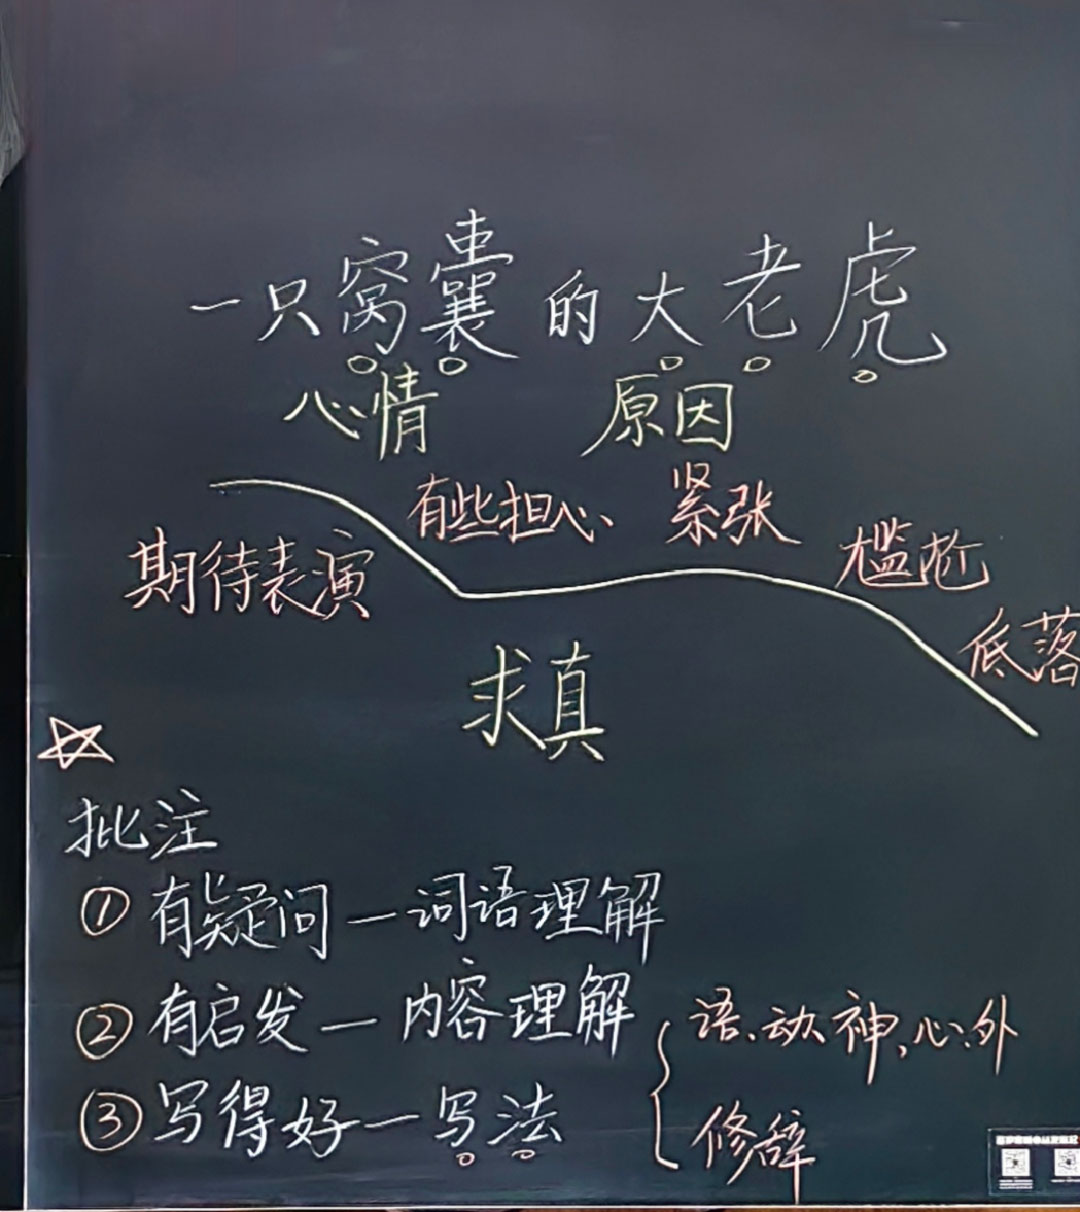 一只窝囊的大老虎
心情 原因
有些担心 紧张
期待表演 尴尬
低落
求真
批注
① 有疑问—词语理解
② 有启发—内容理解
语、动、神、心、外
③ 写得好—写法
修辞